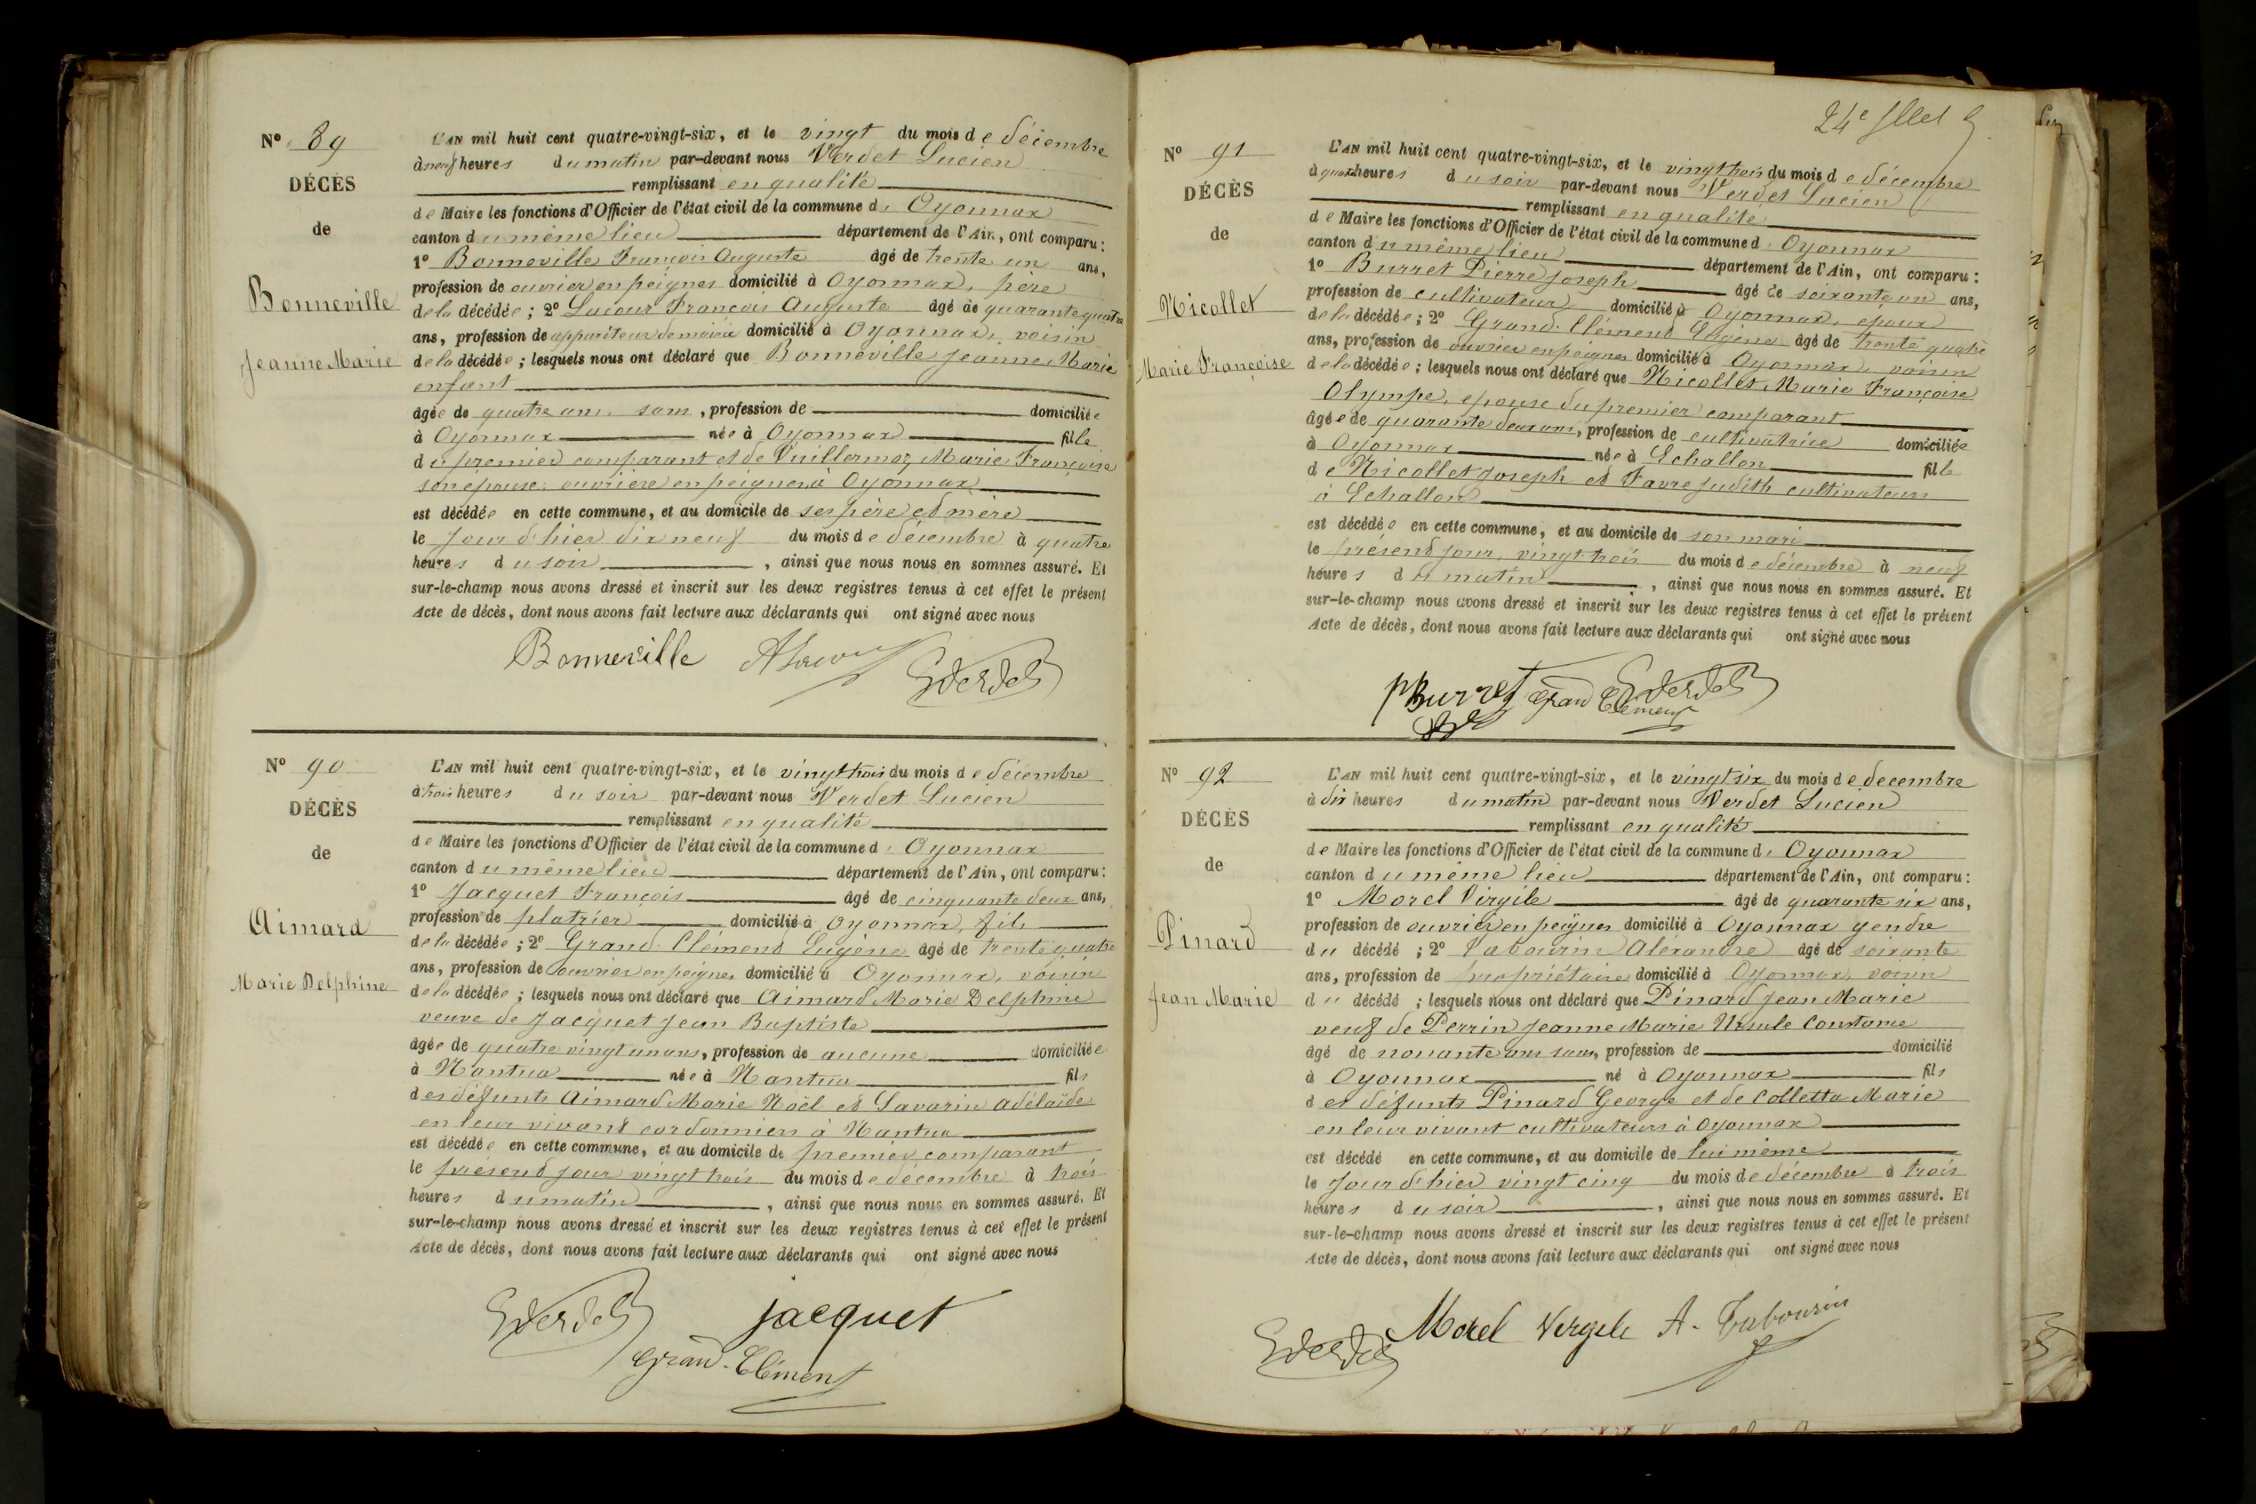 Nº 89
DÉCÈS
de
Bonneville
Jeanne Marie
L'AN mil huit cent quatre-vingt-six, et le vingt du mois de décembre
à neuf heures du matin par-devant nous Verdet Lucien
remplissant en qualité
de Maire les fonctions d'Officier de l'état civil de la commune d' Oyonnax
canton du même lieu département de l'Ain, ont comparu :
1º Bonneville François Auguste âgé de trente un ans,
profession de ouvrier en peignes domicilié à Oyonnax, père
de la décédée ; 2º Lacour François Auguste âgé de quarante quatre
ans, profession de appariteur de mairie domicilié à Oyonnax, voisin
de la décédée ; lesquels nous ont déclaré que Bonneville Jeanne Marie
enfant
âgée de quatre ans, sans, profession de domiciliée
à Oyonnax née à Oyonnax fille
du premier comparant et de Vuillermoz Marie Françoise
son épouse, ouvrière en peignes à Oyonnax
est décédée en cette commune, et au domicile de ses père et mère
le jour d'hier dix neuf du mois de décembre à quatre
heures du soir, ainsi que nous nous en sommes assuré. Et
sur-le-champ nous avons dressé et inscrit sur les deux registres tenus à cet effet le présent
Acte de décès, dont nous avons fait lecture aux déclarants qui ont signé avec nous
Bonneville ALacour Verdet
Nº 90
DÉCÈS
de
Aimard
Marie Delphine
L'AN mil huit cent quatre-vingt-six, et le vingt trois du mois de décembre
à trois heures du soir par-devant nous Verdet Lucien
remplissant en qualité
de Maire les fonctions d'Officier de l'état civil de la commune d' Oyonnax
canton du même lieu département de l'Ain, ont comparu :
1º Jacquet François âgé de cinquante deux ans,
profession de platrier domicilié à Oyonnax, fils
de la décédée ; 2º Grand-Clément Eugène âgé de trente quatre
ans, profession de ouvrier en peignes domicilié à Oyonnax, voisin
de la décédée ; lesquels nous ont déclaré que Aimard Marie Delphine
veuve de Jacquet Jean Baptiste
âgée de quatre vingt un ans, profession de aucune domiciliée
à Nantua née à Nantua fils
des défunts Aimard Marie Noël et Savarin Adélaïde
en leur vivant cordonniers à Nantua
est décédée en cette commune, et au domicile de premier comparant
le présent jour vingt trois du mois de décembre à trois
heures du matin, ainsi que nous nous en sommes assuré. Et
sur-le-champ nous avons dressé et inscrit sur les deux registres tenus à cet effet le présent
Acte de décès, dont nous avons fait lecture aux déclarants qui ont signé avec nous
Verdet jacquet
Grand-Clément
24e
Nº 91
DÉCÈS
de
Nicollet
Marie Françoise
L'AN mil huit cent quatre-vingt-six, et le vingt trois du mois de décembre
à quatre heures du soir par-devant nous Verdet Lucien
remplissant en qualité
de Maire les fonctions d'Officier de l'état civil de la commune d' Oyonnax
canton du même lieu département de l'Ain, ont comparu :
1º Burret Pierre Joseph âgé de soixante un ans,
profession de cultivateur domicilié à Oyonnax, époux
de la décédée ; 2º Grand-Clément Eugène âgé de trente quatre
ans, profession de ouvrier en peignes domicilié à Oyonnax, voisin
de la décédée ; lesquels nous ont déclaré que Nicollet Marie Françoise
Olympe, épouse du premier comparant
âgée de quarante deux ans, profession de cultivatrice domiciliée
à Oyonnax née à Echallon fille
de Nicollet Joseph et Favre Judith cultivateurs
à Echallon
est décédée en cette commune, et au domicile de son mari
le présent jour, vingt trois du mois de décembre à neuf
heures du matin, ainsi que nous nous en sommes assuré. Et
sur-le-champ nous avons dressé et inscrit sur les deux registres tenus à cet effet le présent
Acte de décès, dont nous avons fait lecture aux déclarants qui ont signé avec nous
Burret Grand Clément Verdet
Nº 92
DÉCÈS
de
Pinard
Jean Marie
L'AN mil huit cent quatre-vingt-six, et le vingt six du mois de decembre
à dix heures du matin par-devant nous Verdet Lucien
remplissant en qualité
de Maire les fonctions d'Officier de l'état civil de la commune d' Oyonnax
canton du même lieu département de l'Ain, ont comparu :
1º Morel Virgile âgé de quarante six ans,
profession de ouvrier en peignes domicilié à Oyonnax gendre
du décédé ; 2º Tabourin Alexandre âgé de soixante
ans, profession de propriétaire domicilié à Oyonnax, voisin
du décédé ; lesquels nous ont déclaré que Pinard Jean Marie
veuf de Perrin Jeanne Marie Ursule Constance
âgé de nonante ans sans, profession de domicilié
à Oyonnax né à Oyonnax fils
des défunts Pinard George et de Colletta Marie
en leur vivant cultivateurs à Oyonnax
est décédé en cette commune, et au domicile de lui même
le jour d'hier vingt cinq du mois de décembre à trois
heures du soir, ainsi que nous nous en sommes assuré. Et
sur-le-champ nous avons dressé et inscrit sur les deux registres tenus à cet effet le présent
Acte de décès, dont nous avons fait lecture aux déclarants qui ont signé avec nous
Verdet Morel Vergile A. Tabourin